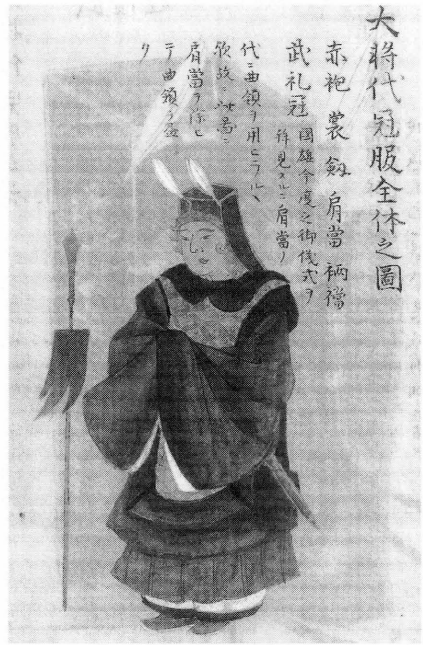 大將代冠服全体之圖
赤袍 裳 釼 肩當 裲襠
武礼冠 國雄今度之御儀式ヲ
拝見スルニ肩當ノ
代ニ曲領ヲ用ヒラルヽ
故ニ此
肩當ヲ除ヒ
テ曲領ヲ畫
ク